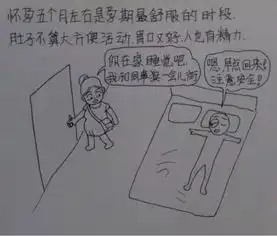 怀孕五个月左右是孕期最舒服的时段.
肚子不算大方便活动,胃口又好,人也有精力.
你在家睡觉吧
我和同事逛一会儿街
嗯,早点回来!
注意安全!